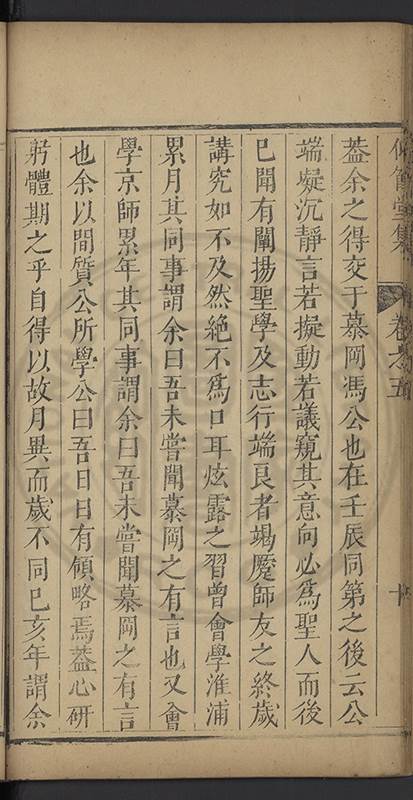 堂集 卷之五 十
蓋余之得交于慕岡馮公也在壬辰同第之後云公
端凝沉靜言若擬動若議窺其意向必為聖人而後
已聞有闡揚聖學及志行端良者竭蹷師友之終歲
講究如不及然絕不為口耳炫露之習曾會學淮浦
累月其同事謂余曰吾未嘗聞慕岡之有言也又會
學京師累年其同事謂余曰吾未嘗聞慕岡之有言
也余以間質公所學公曰吾日日有領略焉蓋心研
躬體期之乎自得以故月異而歲不同已亥年謂余